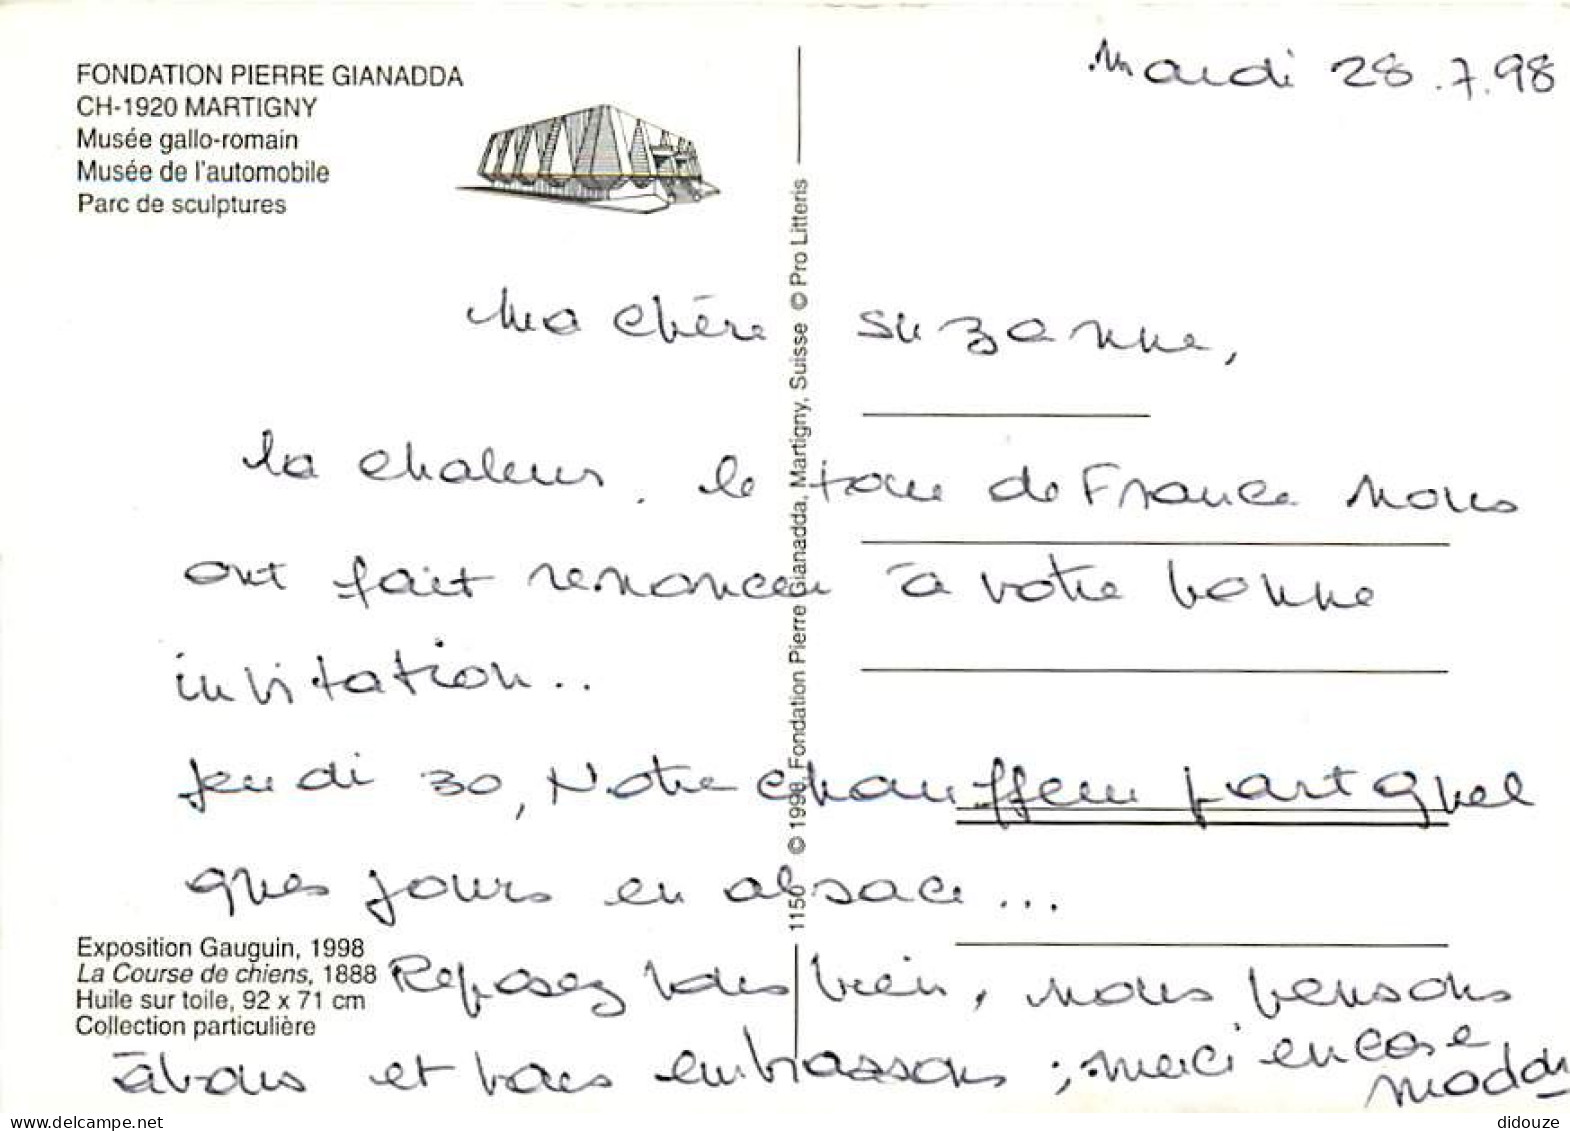 FONDATION PIERRE GIANADDA
CH-1920 MARTIGNY
Musée gallo-romain
Musée de l'automobile
Parc de sculptures
Mardi 28.7.98
Ma chère Suzanne,
la chaleur, le tour de France nous
ont fait renoncer à votre bonne
invitation..
Jeudi 30, Notre chauffeur part quel
ques jours en alsace...
Reposez vous bien, nous pensons
à vous et vous embrassons ; merci encore
Exposition Gauguin, 1998
La Course de chiens, 1888
Huile sur toile, 92 x 71 cm
Collection particulière
1150 © 1998, Fondation Pierre Gianadda, Martigny, Suisse © Pro Litteris
didouze